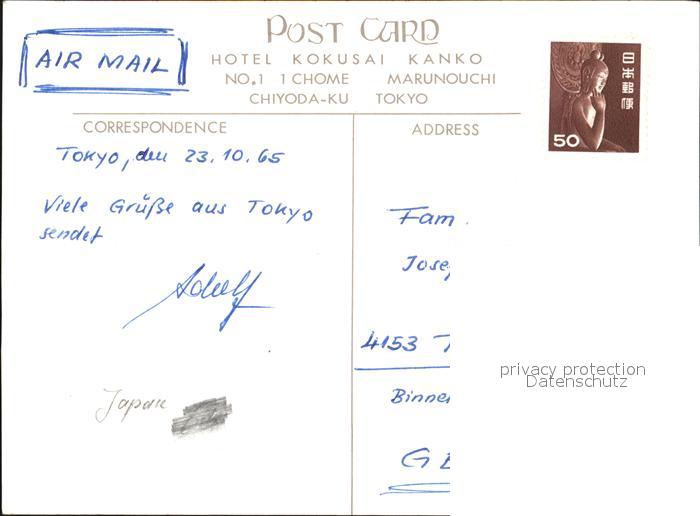 POST CARD
AIR MAIL
HOTEL KOKUSAI KANKO
NO.1 1 CHOME MARUNOUCHI
CHIYODA-KU TOKYO
日本郵便
50
CORRESPONDENCE
Tokyo, den 23.10.65
Viele Grüße aus Tokyo
sendet
Adolf
Japan
ADDRESS
Fam.
Jose
4153 T
Binne
G
privacy protection
Datenschutz